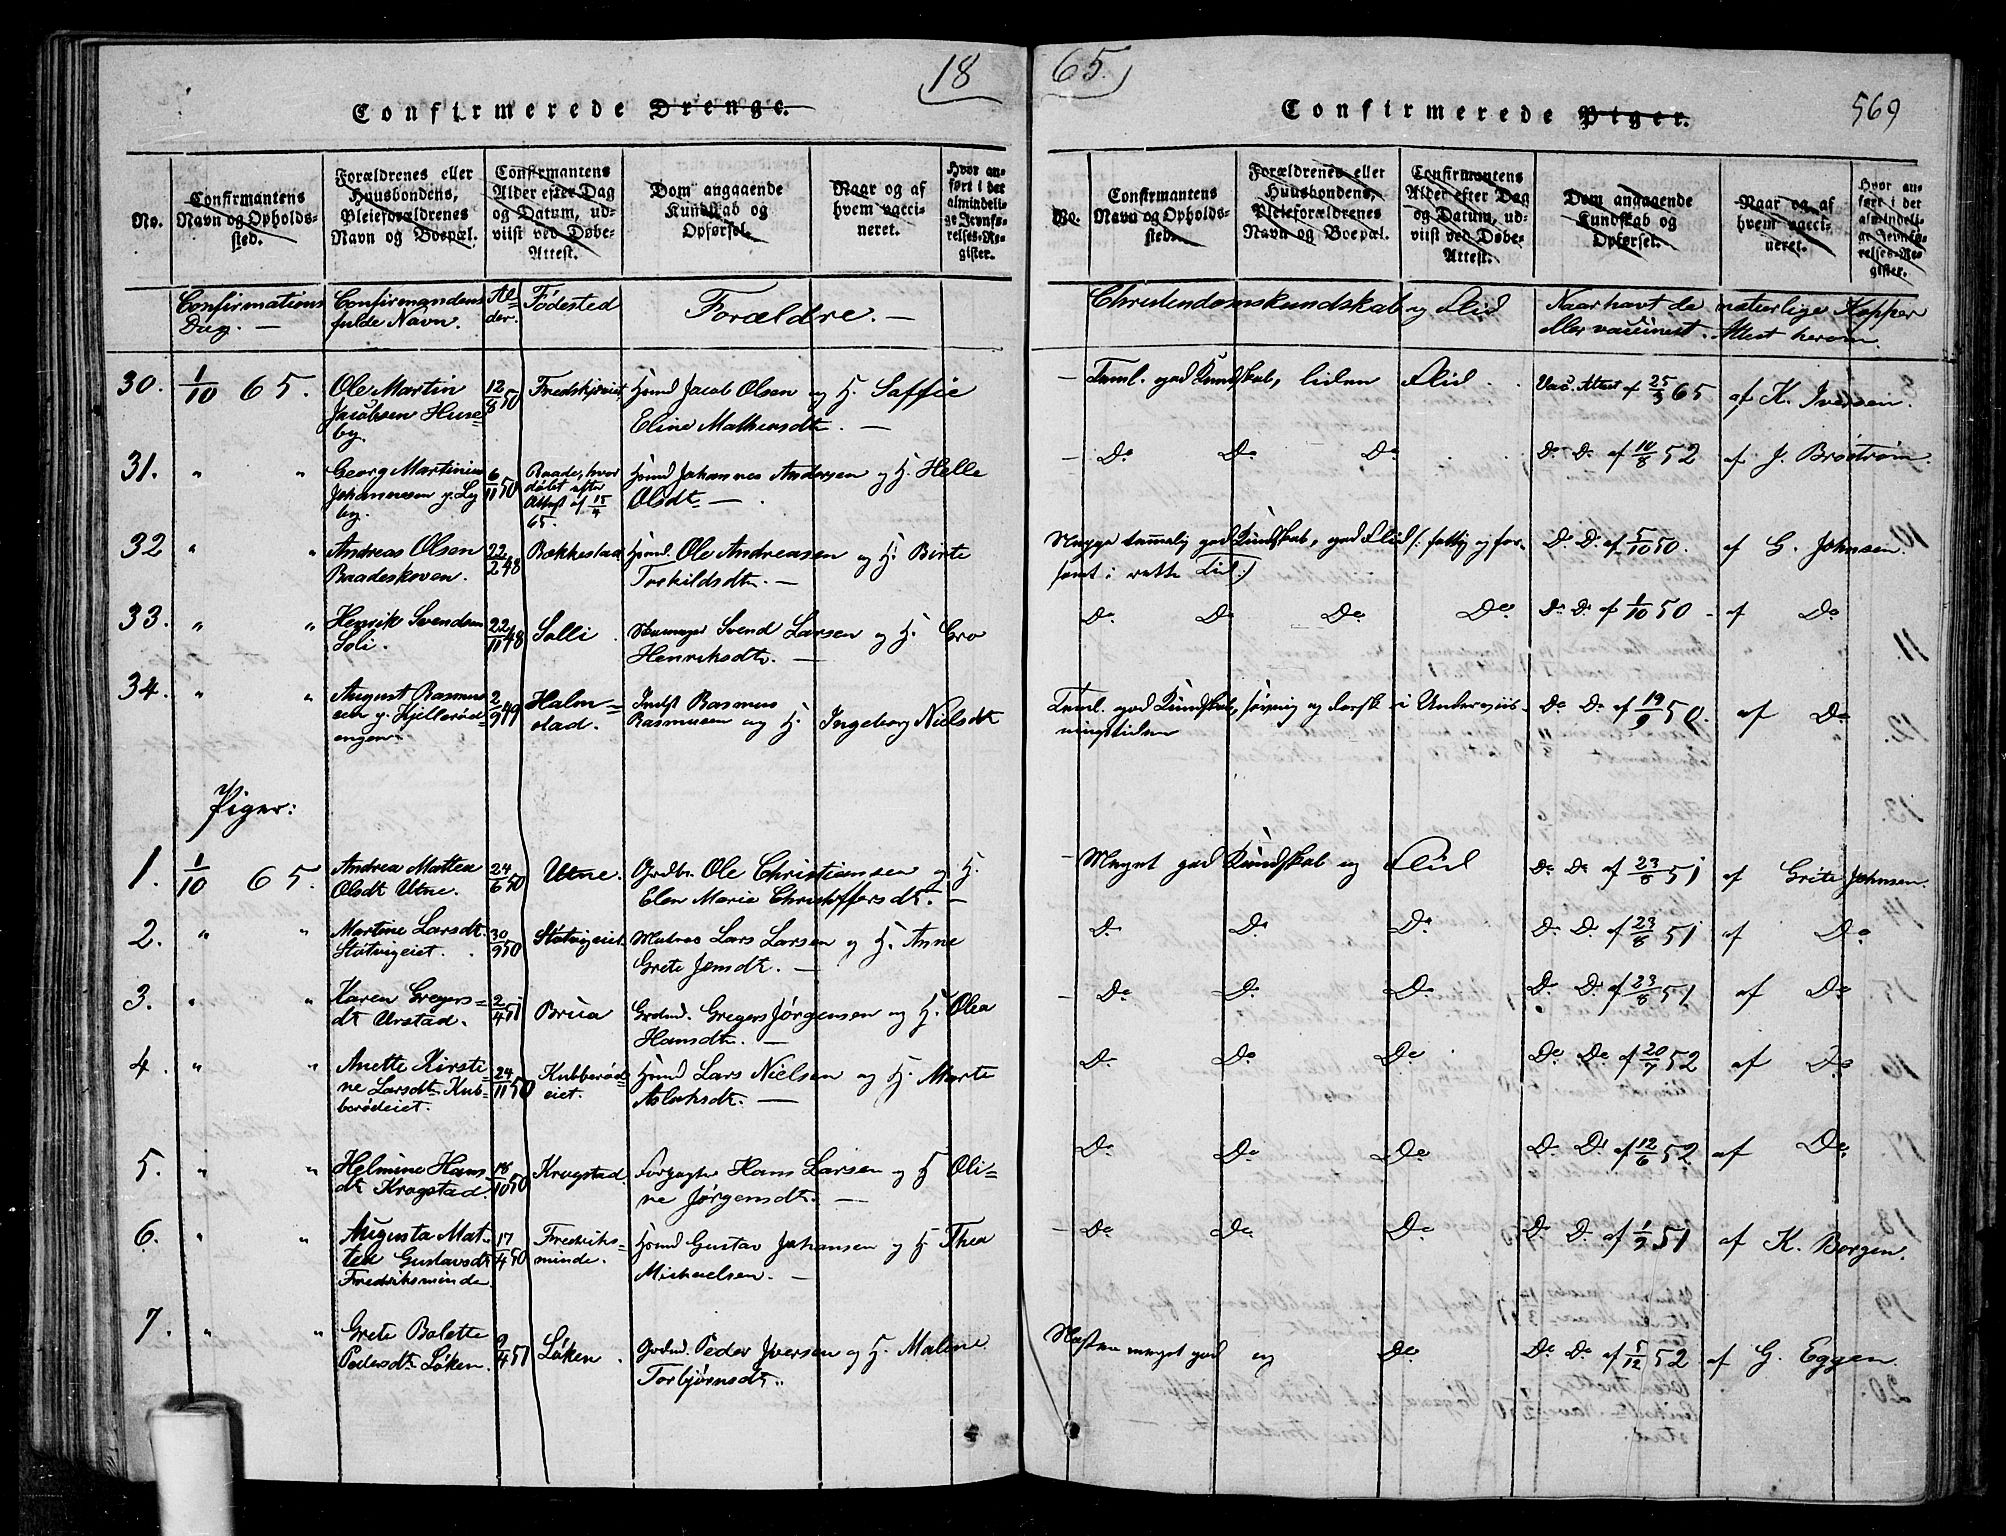 18
65.
569
Confirmerede Drenge.
Confirmerede Piger.
No.
Confirmantens Navn og Opholdssted.
Forældrenes eller Huusbondens, Pleieforældrenes Navn og Boepæl.
Confirmantens Alder efter Dag og Datum, udviist ved Døbe-Attest.
Dom angaaende Kundskab og Opførsel.
Naar og af hvem vaccineret.
Hvor anført i det almindelige Jevnførelses-Register.
No.
Confirmantens Navn og Opholdssted.
Forældrenes eller Huusbondens, Pleieforældrenes Navn og Boepæl.
Confirmantens Alder efter Dag og Datum, udviist ved Døbe-Attest.
Dom angaaende Kundskab og Opførsel.
Naar og af hvem vaccineret.
Hvor anført i det almindelige Jevnførelses-Register.
Confirmations Dag. — Confirmandens fulde Navn. Alder. Fødested Forældre. — Christendomskundskab og Flid Naar havt de naturlige Kopper eller vaccineret. Attest herom.
30. 1/10 65. Ole Martin Jacobsen Huseby. 12/8 50 Fredskjæreiet, Hmd Jacob Olsen og H. Saffie Eline Mathensdt. — Teml. god Kundskab, liden Flid. Vac. Attest af 25/3 65 af K. Iversen.
31. " " Georg Martinius Johannesen p. Lyby. 6/11 50 Raade, hvor døbt efter Attest af 15/4 65. Hmd Johannes Andersen og H. Helle Olsdt. — Do Do Do Do Do af 10/8 52 af J. Brøstrøm.
32 " " Andreas Olsen Raadeskoven. 22/2 48 Bækkestad Hmd. Ole Andreasen og H. Birte Torkildsdt. — Neppe temmelig god Kundskab, god Flid /: fattig og forsømt i rette Tid:/ Do Do af 5/10 50. af G. Johnsen.
33. " " Henrik Svendsen Soli. 22/11 48 Solli. Svend Larsen og H. Gro Henriksdt. — Do Do Do Do Do Do af 1/10 50 af Do
34. " " August Rasmussen p. Kjellerødengen. 2/9 49 Halmstad. Indst Rasmus Rasmussen og H. Ingeborg Nielsdt Teml. god Kundskab, og dorsk i Underviisningstiden Do Do af 19/9 50. af Do
Piger:
1. 1/10 65. Andrea Mattea Olsdt Utne. 24/6 50 Utne. Grdbr. Ole Christiansen og H. Elen Marie Christoffersdt. — Meget god Kundskab og Flid Do Do af 23/8 51 af Grete Johnsen.
2. " " Martine Larsdt. Støtvigeiet. 30/9 50 Støtvigeiet. Matros Lars Larsen og H. Anne Grete Jensdt. — Do Do Do Do Do af 23/8 51 af Do
3. " " Karen Gregersdt Urstad. 2/4 51 Brua Grdmd. Gregers Jørgensen og H. Olea Hansdt. — Do Do Do Do Do af 23/8 51 af Do
4. " " Anette Kirstine Larsdt. Kubberødeiet. 24/11 50 Kubberødeiet. Hmd Lars Nielsen og H. Marte Aslaksdt. — Do Do Do Do Do af 20/7 52 af Do
5. " " Helmine Hansdt. Krogstad. 18/10 50 Krogstad. Forpagter Hans Larsen og H Oline Jørgensdt. — Do Do Do Do Do af 12/6 52 af Do
6. " " Augusta Mattea Gustavsdt Fredriksminde. 17/4 50 Fredriksminde. Hmd Gustav Johansen og H. Thea Michaelsen. — Do Do Do Do Do af 1/9 51 af K. Borgen.
7. " " Grete Bolette Pedersdt. Løken. 9/4 51 Løken. Grdmd. Peder Iversen og H. Maline Torbjørnsdt. Næsten meget god og Do Do Do af 5/12 52 af G. Eggen.